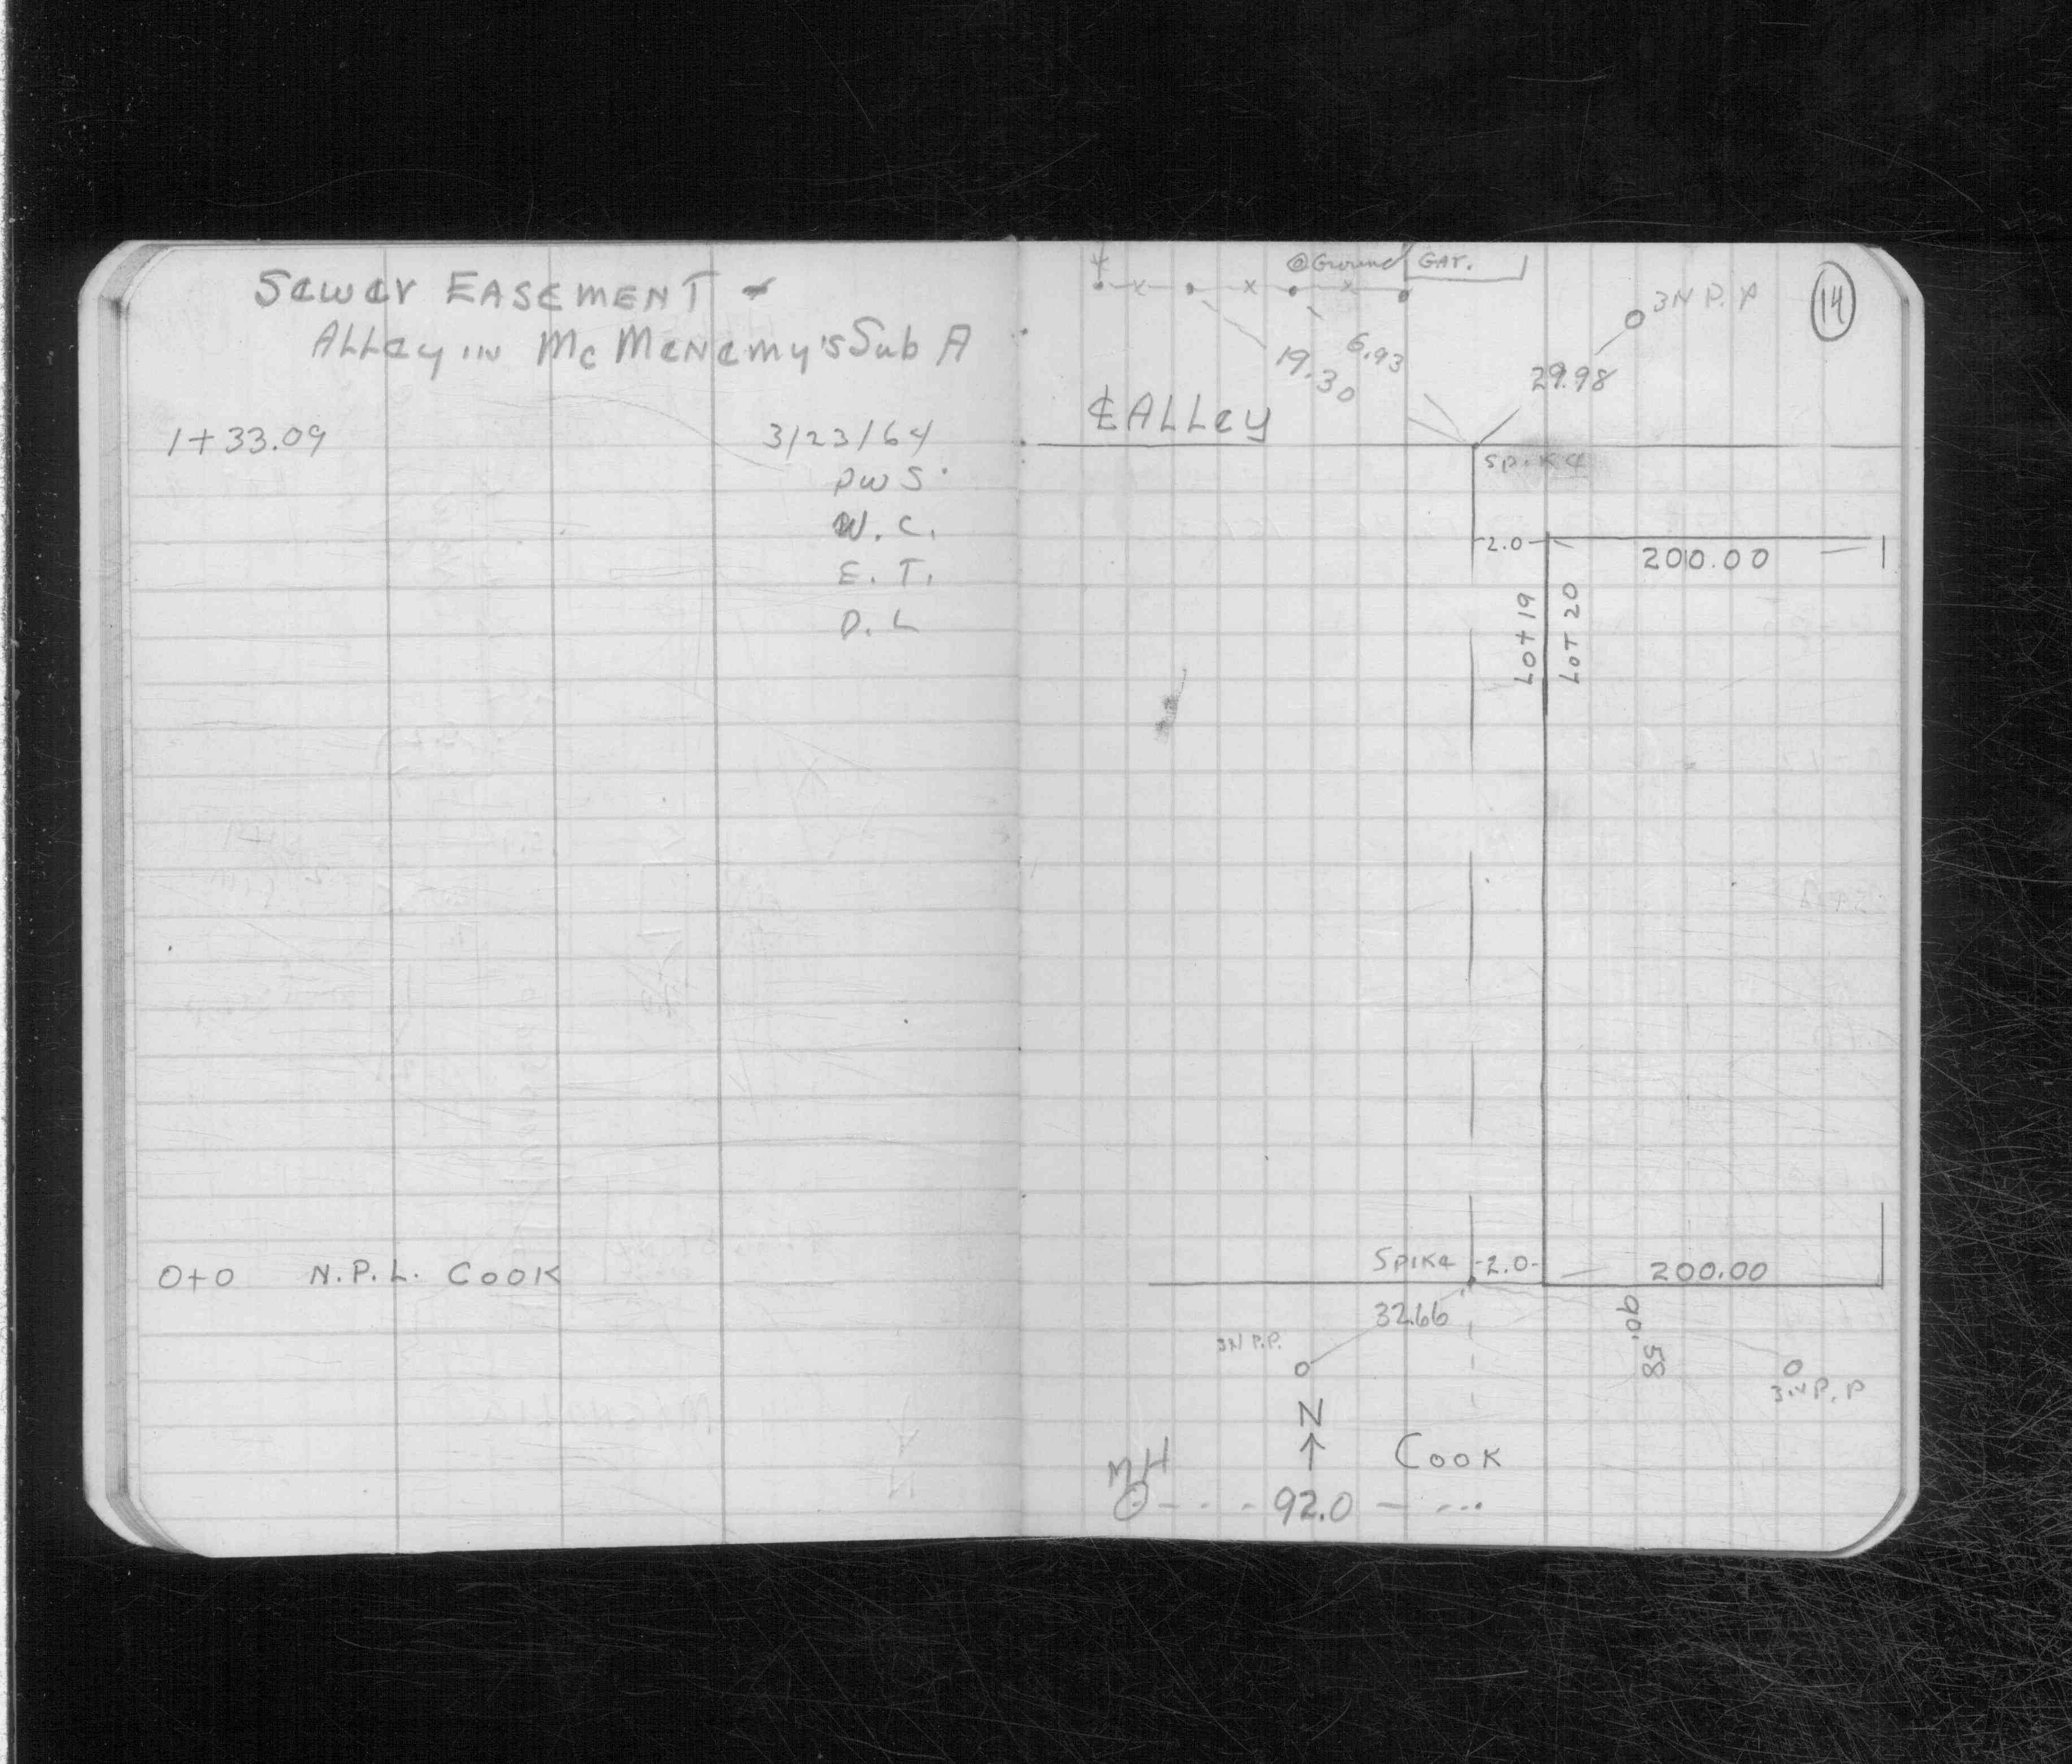 Sewer EASEMENT -
ALLey IN McMENemy's Sub A
1+33.09 3/23/64
PWS
W. C.
E. T.
D. L
0+0 N.P.L. COOK
@Ground GAR.
14
3N P.P
6.93
19.30
29.98
℄ ALLey
Spike
2.0 200.00
Lot 19
LoT 20
Spike 2.0 200.00
32.66
90.58
3N P.P.
3N P.P
N
COOK
MH
92.0